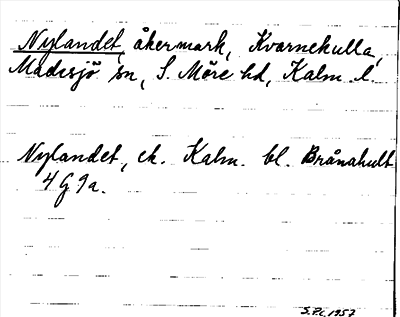 Nylandet, åkermark, Kvarnekulla,
Madesjö sn, S. Möre hd, Kalm. l.
Nylandet, ek. Kalm. bl. Brånahult
4 G 9a.
S.Pl. 1957